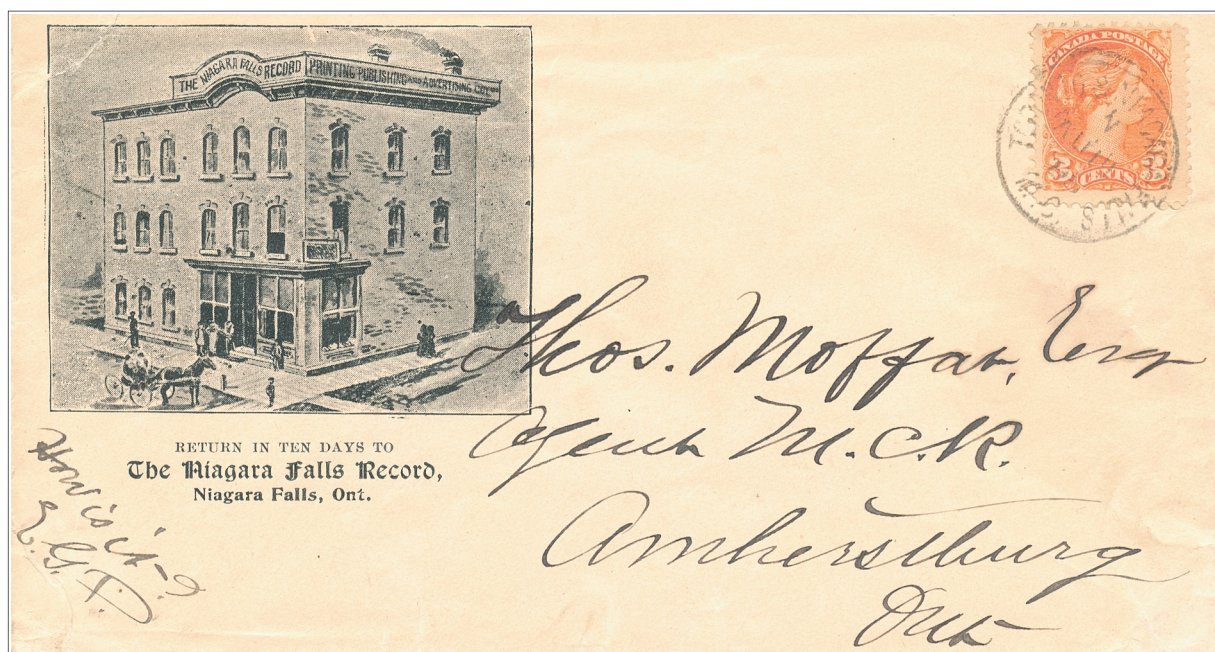 THE NIAGARA FALLS RECORD PRINTING PUBLISHING AND ADVERTISING
CANADA POSTAGE
3 CENTS 3
RETURN IN TEN DAYS TO
The Niagara Falls Record,
Niagara Falls, Ont.
How is it
Thos. Moffat, Esq
Agent M.C.R.
Amherstburg
Ont